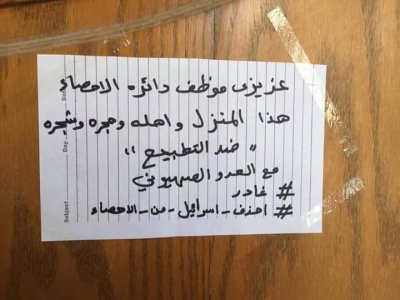 عزيزي موظف دائره الاحصاء
هذا المنزل واهله وحجره وشجره
"ضد التطبيع"
مع العدو الصهيوني
# غادر
# احذف - اسرائيل - من - الاحصاء
Subject
Day